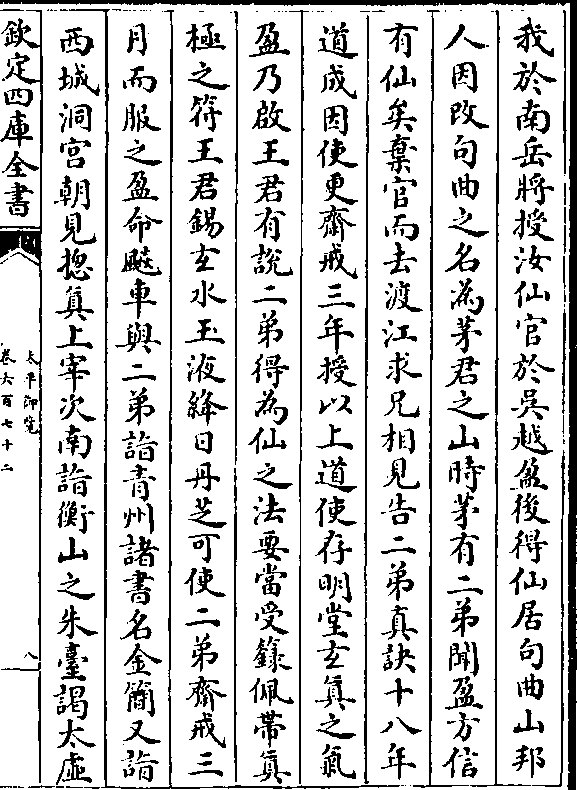 我於南岳將授汝仙官於吳越盈後得仙居句曲山邦
人因改句曲之名為茅君之山時茅有二弟聞盈方信
有仙矣棄官而去渡江求兄相見告二弟真訣十八年
道成因使更齋戒三年授以上道使存明堂玄真之氣
盈乃啟王君有說二弟得為仙之法要當受籙佩帶真
極之符王君錫玄水玉液絳日丹芝可使二弟齋戒三
月而服之盈命飈車與二弟詣青州諸書名金簡又詣
西城洞宮朝見揔真上宰次南詣衡山之朱臺謁太虛
欽定四庫全書
太平御覽
卷六百七十二
八